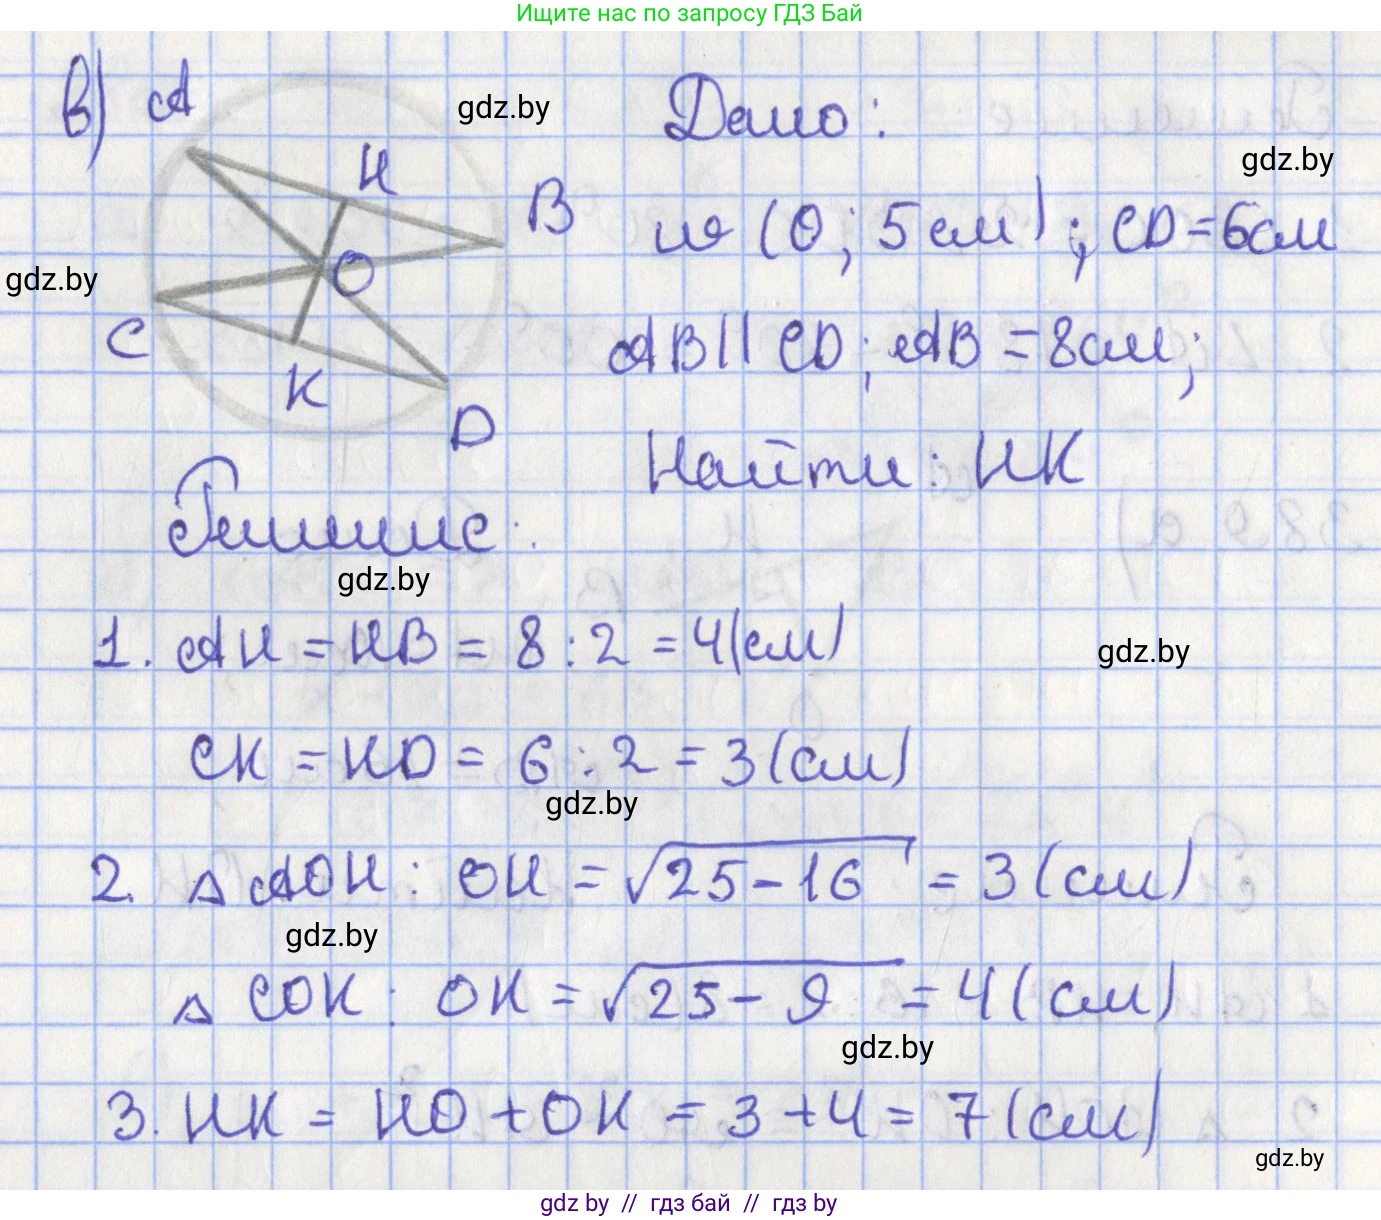 Ищите нас по запросу ГДЗ Бай
в) A
gdz.by
Дано:
gdz.by
H
B
(O; 5см); CD=6см
gdz.by
O
C
AB||CD; AB=8см;
K
D
Найти: HK
gdz.by
1. AH=HB=8:2=4(см)
gdz.by
CK=KD=6:2=3(см)
gdz.by
2. △AOH: OH=√25-16=3(см)
gdz.by
△COK: OK=√25-9=4(см)
gdz.by
3. HK=HO+OK=3+4=7(см)
gdz.by
gdz by // гдз бай // гдз by